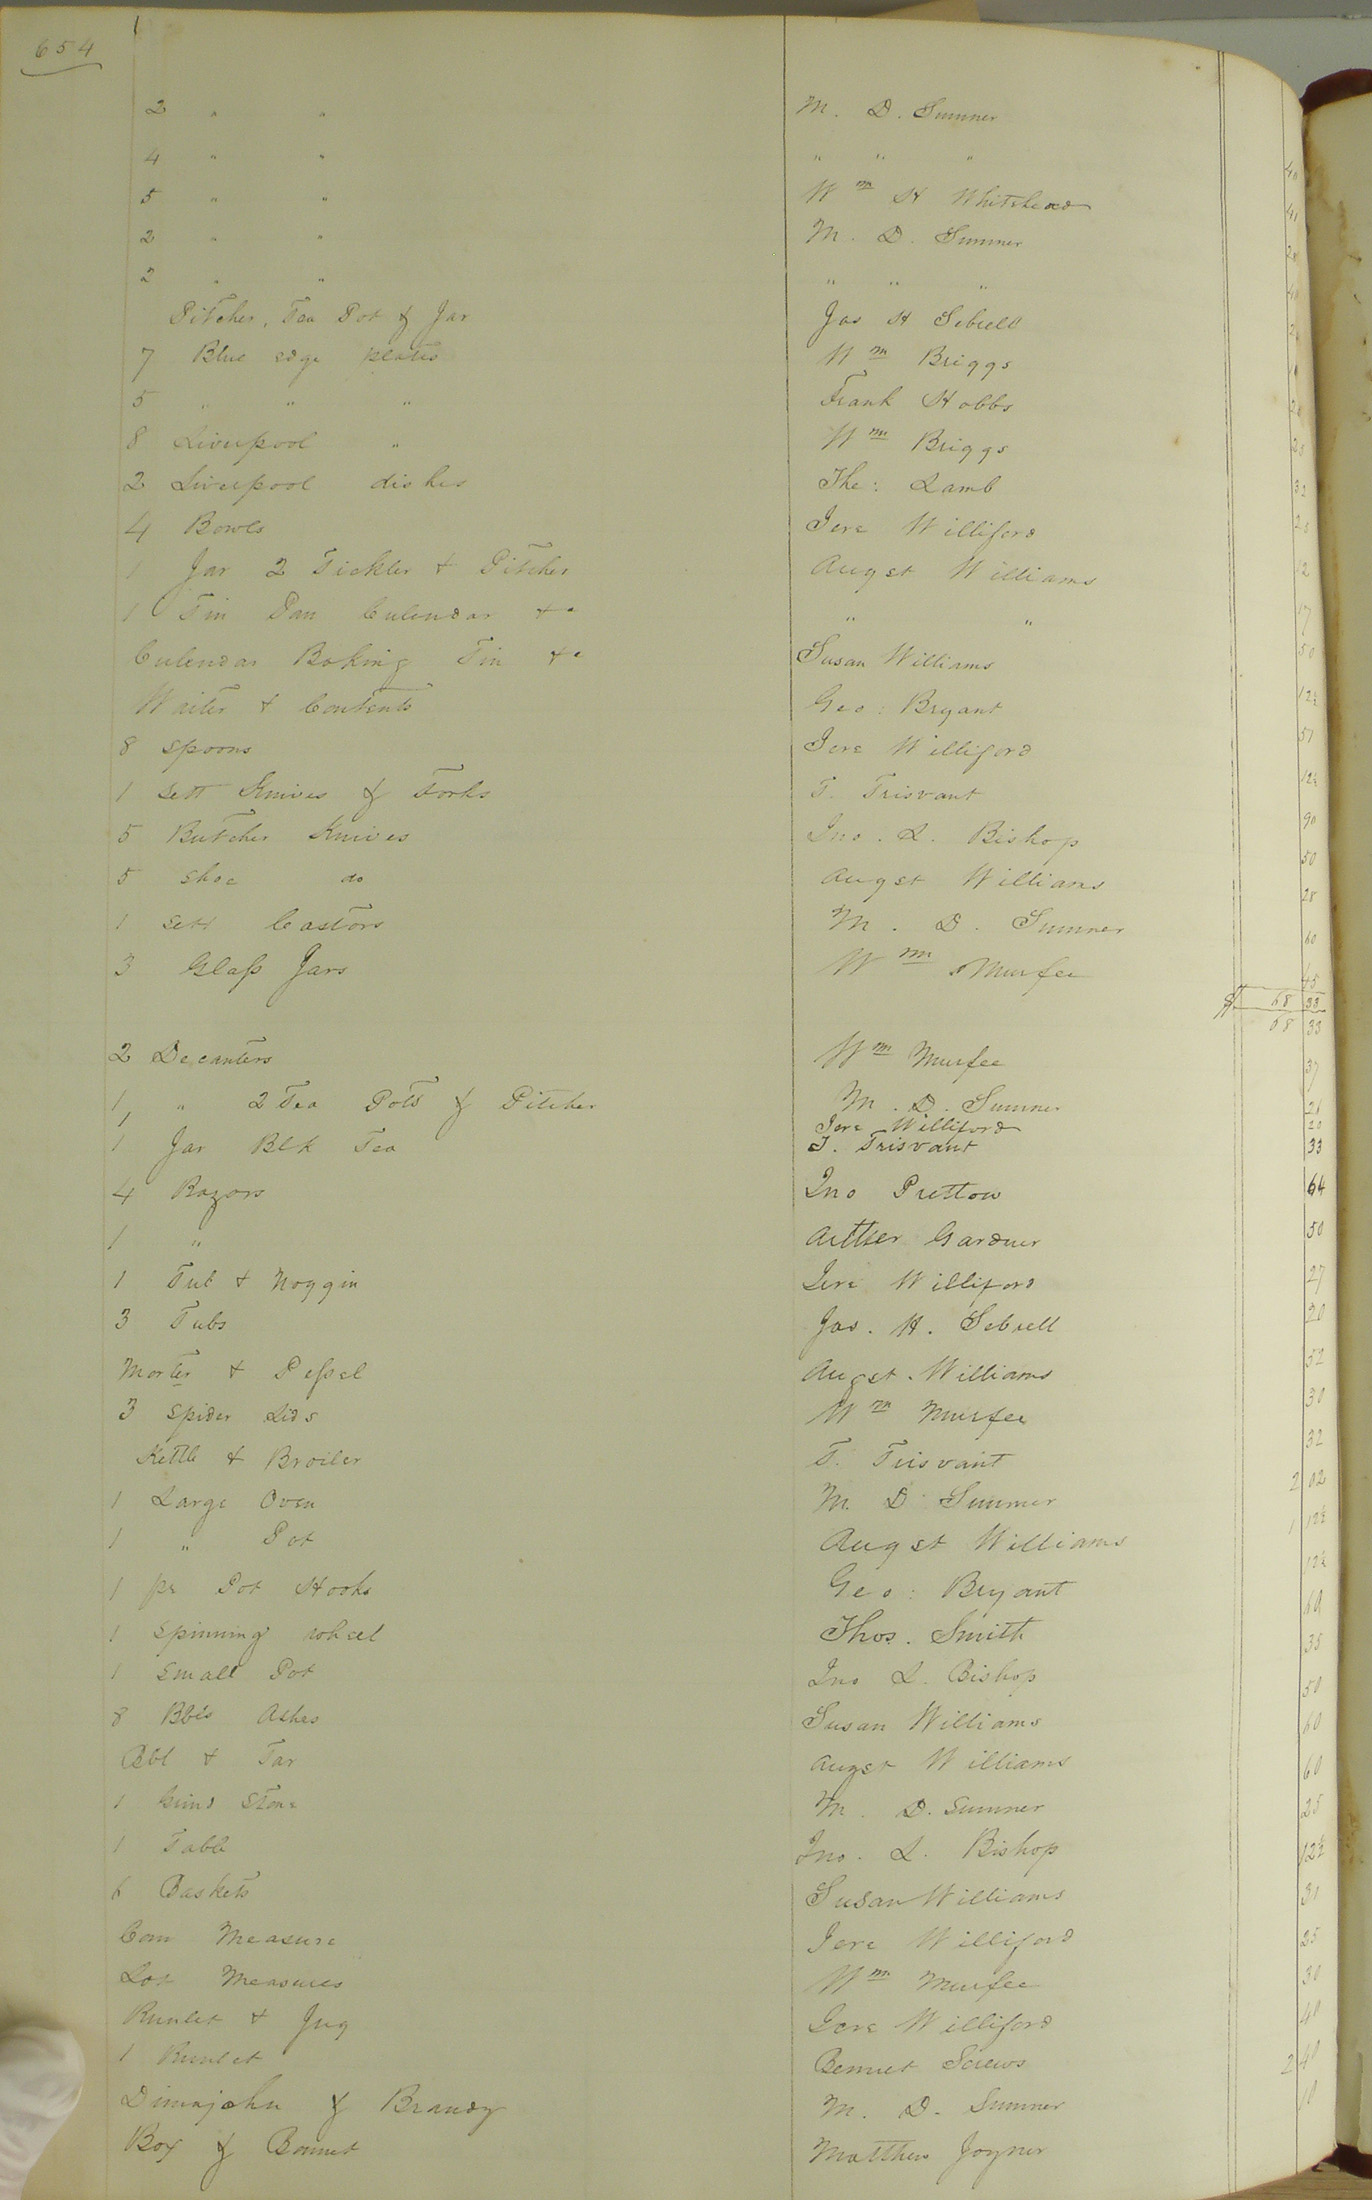 654
2 " " M. D. Sumner
4 " " " " " 40
5 " " Wm H Whitehead 41
2 " " M. D. Sumner 28
2 " " " " " 40
Pitcher, Tea Pot & Jar Jas H Sebrell
7 Blue edge plates Wm Briggs
5 " " " Frank Hobbs
8 Liverpool " Wm Briggs 25
2 Liverpool dishes Tho: Lamb 32
4 Bowls Jere Williford 20
1 Jar 2 Tickler & Pitcher Augst Williams 12
1 Tin Pan Culendar &c " " 17
Culendar Baking Tin &c Susan Williams 50
Waiter & Contents Geo: Bryant 12½
8 Spoons Jere Williford 57
1 Sett Knives & Forks T. Trisvant 12½
5 Butcher Knives Jno. L. Bishop 90
5 Shoe do Augst Williams 50
1 Sett Castors M. D. Sumner 28
3 Glass Jars Wm Murfee 60
45
$ 68 33
68 33
2 Decanters Wm Murfee 37
1 " 2 Tea Pots & Pitcher M. D. Sumner 21
1 Jere Williford 20
1 Jar Blk Tea T. Trisvant 33
4 Razors Jno Prettow 64
1 " Arther Gardner 50
1 Tub & Noggin Jere Williford 27
3 Tubs Jas. H. Sebrell 20
Morter & Pessel Augst. Williams 52
3 Spider Lids Wm Murfee 30
Kettle & Broiler T. Trisvant 32
1 Large Oven M. D Sumner 2 02
1 " Pot Augst Williams 1 12½
1 pr Pot Hooks Geo: Bryant 12½
1 Spinning wheel Thos. Smith 69
1 Small Pot Jno L. Bishop 35
8 Bbls Ashes Susan Williams 50
Bbl & Tar Augst Williams 60
1 Grind Stone M. D. Sumner 60
1 Table Jno. L. Bishop 25
6 Baskets Susan Williams 12½
Corn Measure Jere Williford 31
Lot Measures Wm Murfee 25
Runlet & Jug Jere Williford 30
1 Runlet Bennet Screws 40
Dimajohn & Brandy M. D. Sumner 2 40
Box & Bonnet Matthew Joyner 10